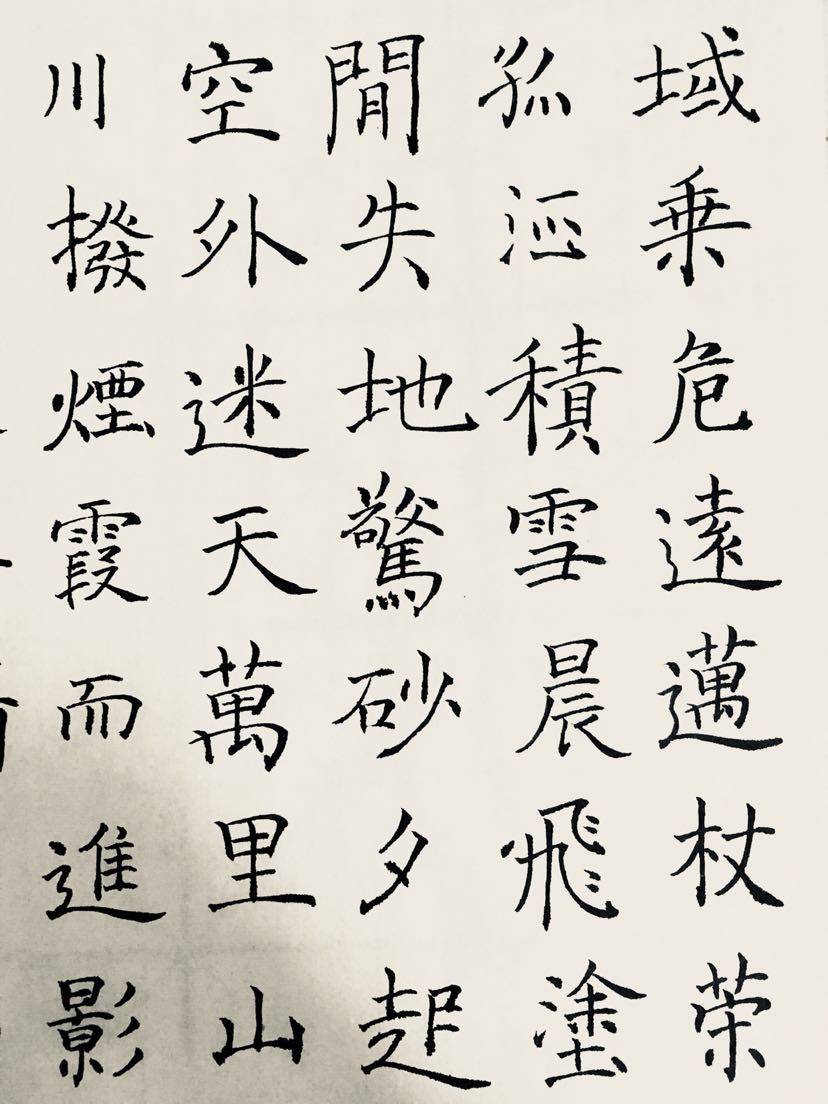 域乗危遠邁杖策
孤征積雪晨飛塗
閒失地驚砂夕起
空外迷天萬里山
川撥煙霞而進影